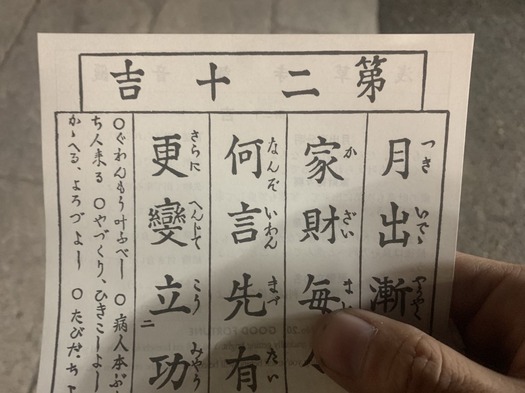 第二十吉
つき いでゝ やうやく
月出漸
か ざい
家財毎
なんぞ いわん まづ たい
何言先有
さらに へんじて こう みやう
更變立二功
○ぐわんもう叶ふべし ○病人本ぶ
ち人来る ○やづくり、ひきこしよし
かゝへる、よろづよし ○たびだち